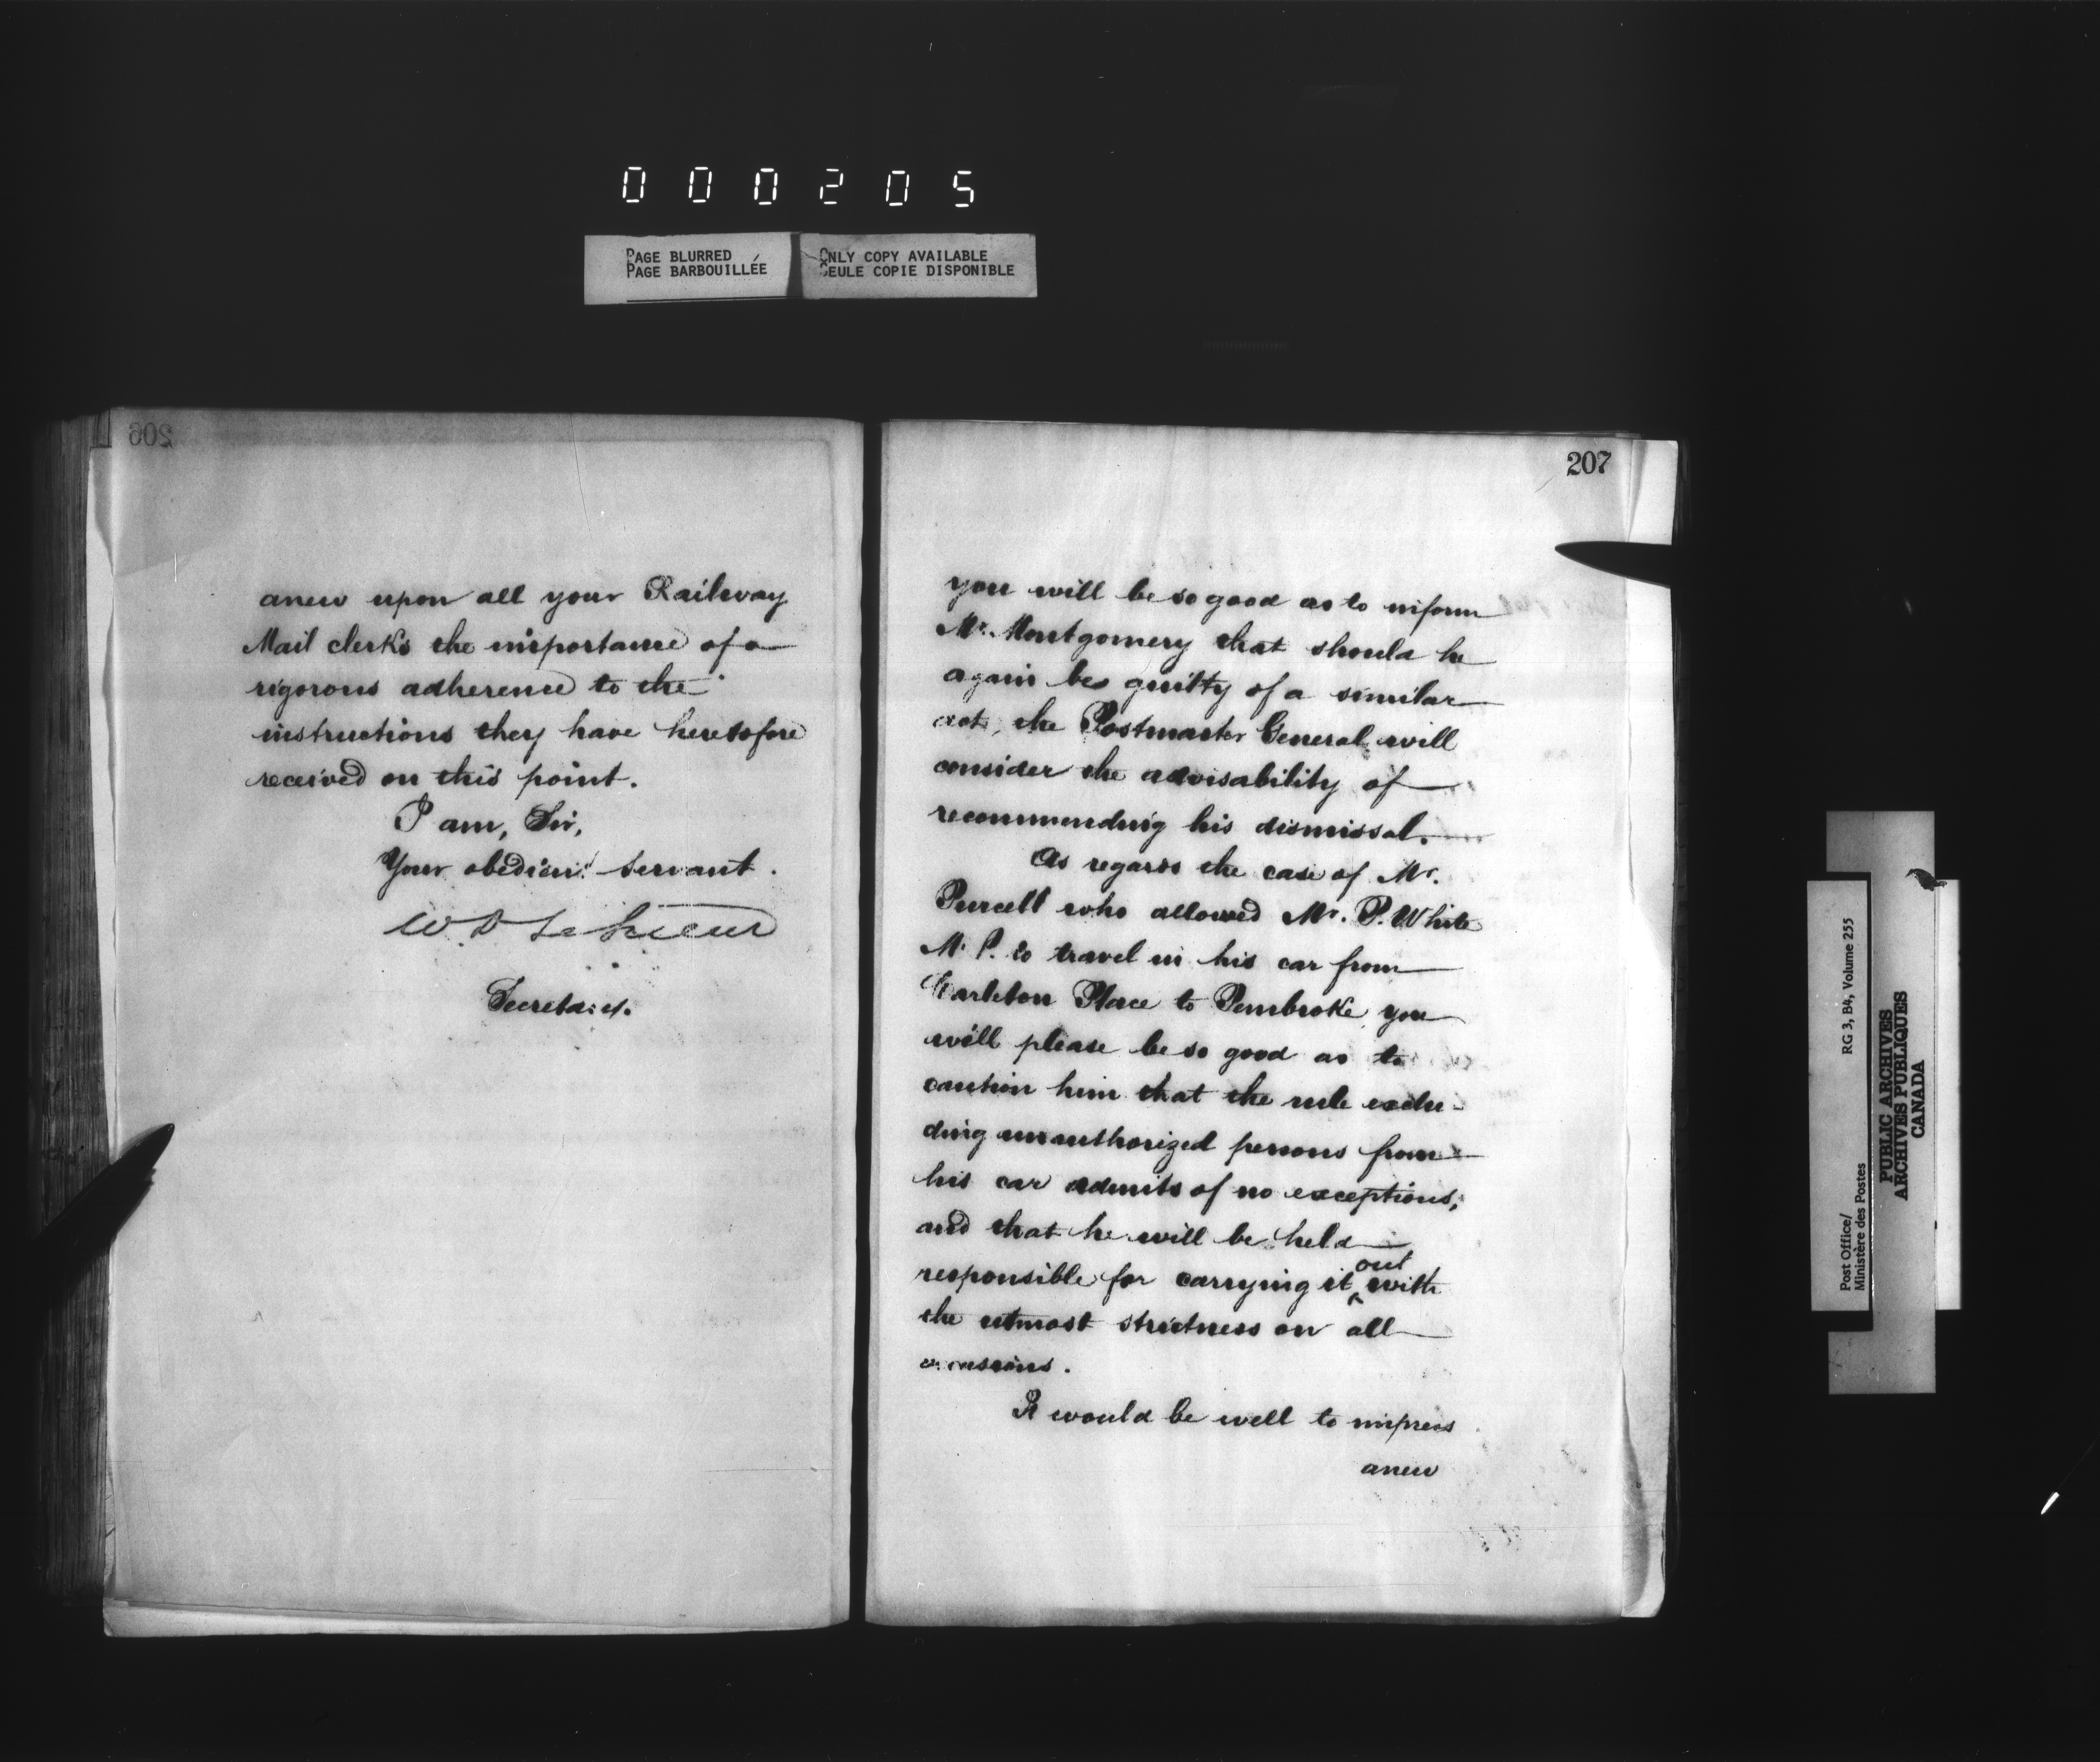 000205
PAGE BLURRED
PAGE BARBOUILLÉE
ONLY COPY AVAILABLE
SEULE COPIE DISPONIBLE
206
anew upon all your Railway
Mail clerks the importance of a
rigorous adherence to the
instructions they have heretofore
received on this point.
I am, Sir,
Your obedient servant.
W. D. LeSueur
Secretary.
207
you will be so good as to inform
Mr. Montgomery that should he
again be guilty of a similar
act, the Postmaster General will
consider the advisability of
recommending his dismissal.
As regards the case of Mr.
Purcell who allowed Mr. P. White
M.P. to travel in his car from
Carleton Place to Pembroke, you
will please be so good as to
caution him that the rule exclu-
ding unauthorized persons from
his car admits of no exceptions,
and that he will be held
responsible for carrying it out with
the utmost strictness on all
occasions.
It would be well to impress
anew
Post Office/
Ministère des Postes
RG 3, B4, Volume 255
PUBLIC ARCHIVES
ARCHIVES PUBLIQUES
CANADA